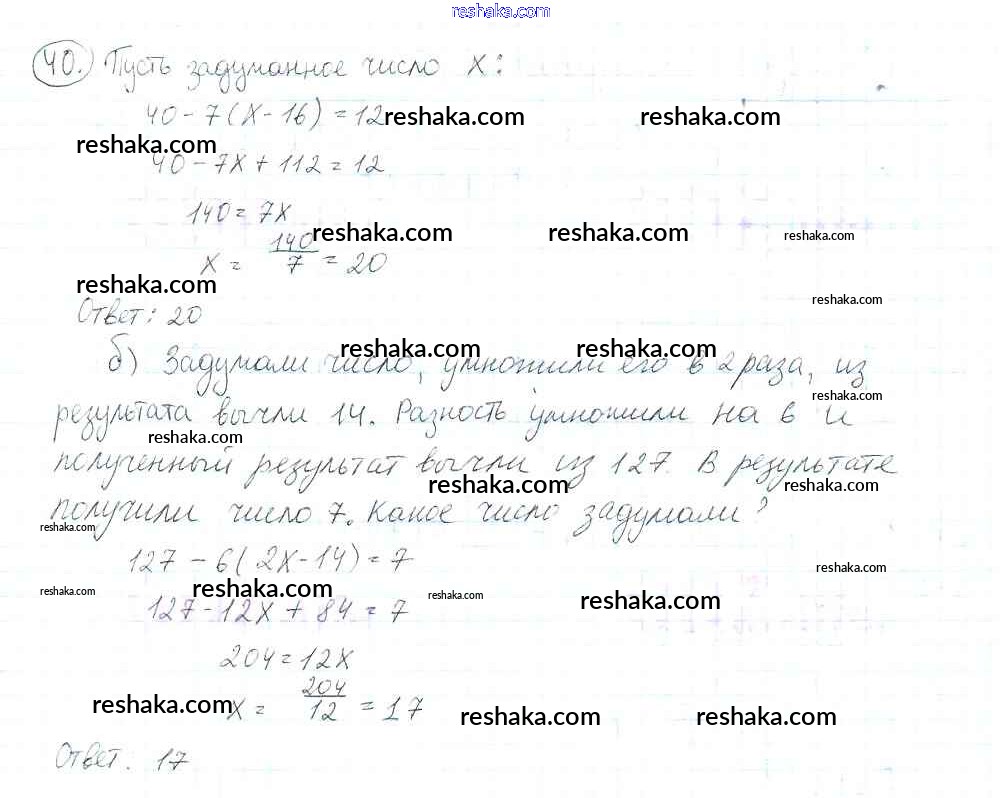 reshaka.com
40. Пусть задуманное число x:
40 - 7(x - 16) = 12
reshaka.com reshaka.com
reshaka.com
40 - 7x + 112 = 12
140 = 7x
reshaka.com reshaka.com reshaka.com
x = 140/7 = 20
reshaka.com
reshaka.com
Ответ: 20
reshaka.com reshaka.com
б) Задумали число, умножили его в 2 раза, из
reshaka.com
результата вычли 14. Разность умножили на 6 и
reshaka.com
полученный результат вычли из 127. В результате
reshaka.com reshaka.com
получили число 7. Какое число задумали?
reshaka.com
127 - 6(2x - 14) = 7
reshaka.com
reshaka.com reshaka.com reshaka.com reshaka.com
127 - 12x + 84 = 7
204 = 12x
x = 204/12 = 17
reshaka.com reshaka.com reshaka.com
Ответ. 17